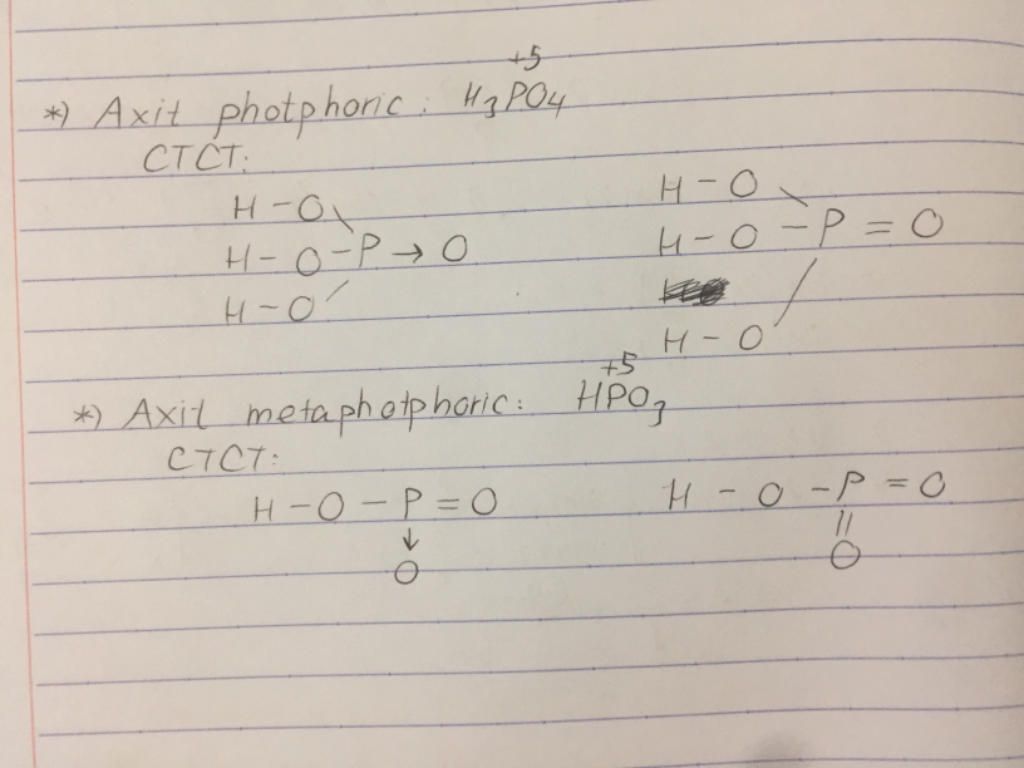 +5
*) Axit photphoric: H3PO4
CTCT:
H - O \ H - O \
H - O - P → O H - O - P = O
H - O / H - O /
+5
*) Axit metaphotphoric: HPO3
CTCT:
H - O - P = O H - O - P = O
↓ ||
O O